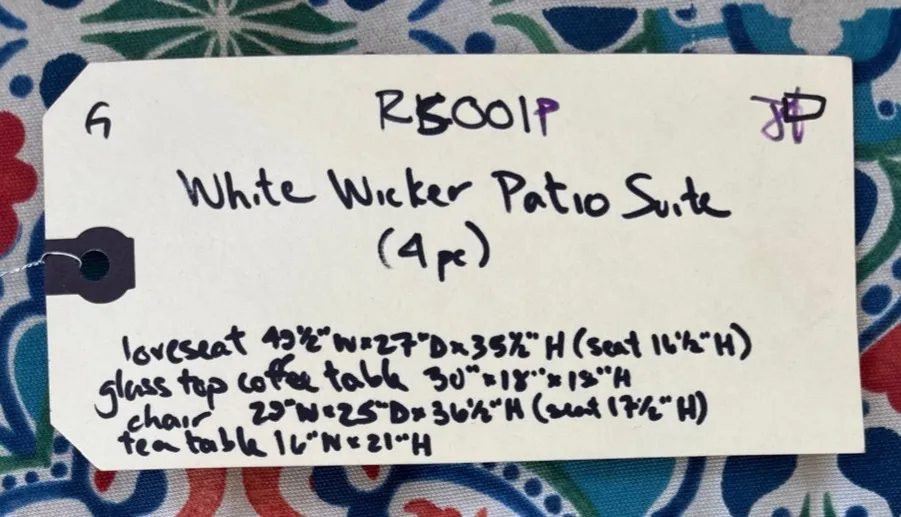 G
R15001P
White Wicker Patio Suite
(4 pc)
loveseat 49½" W x 27" D x 35½" H (seat 16½" H)
glass top coffee table 30" x 18" x 18" H
chair 29" W x 25" D x 36½" H (seat 17½" H)
tea table 16" W x 21" H